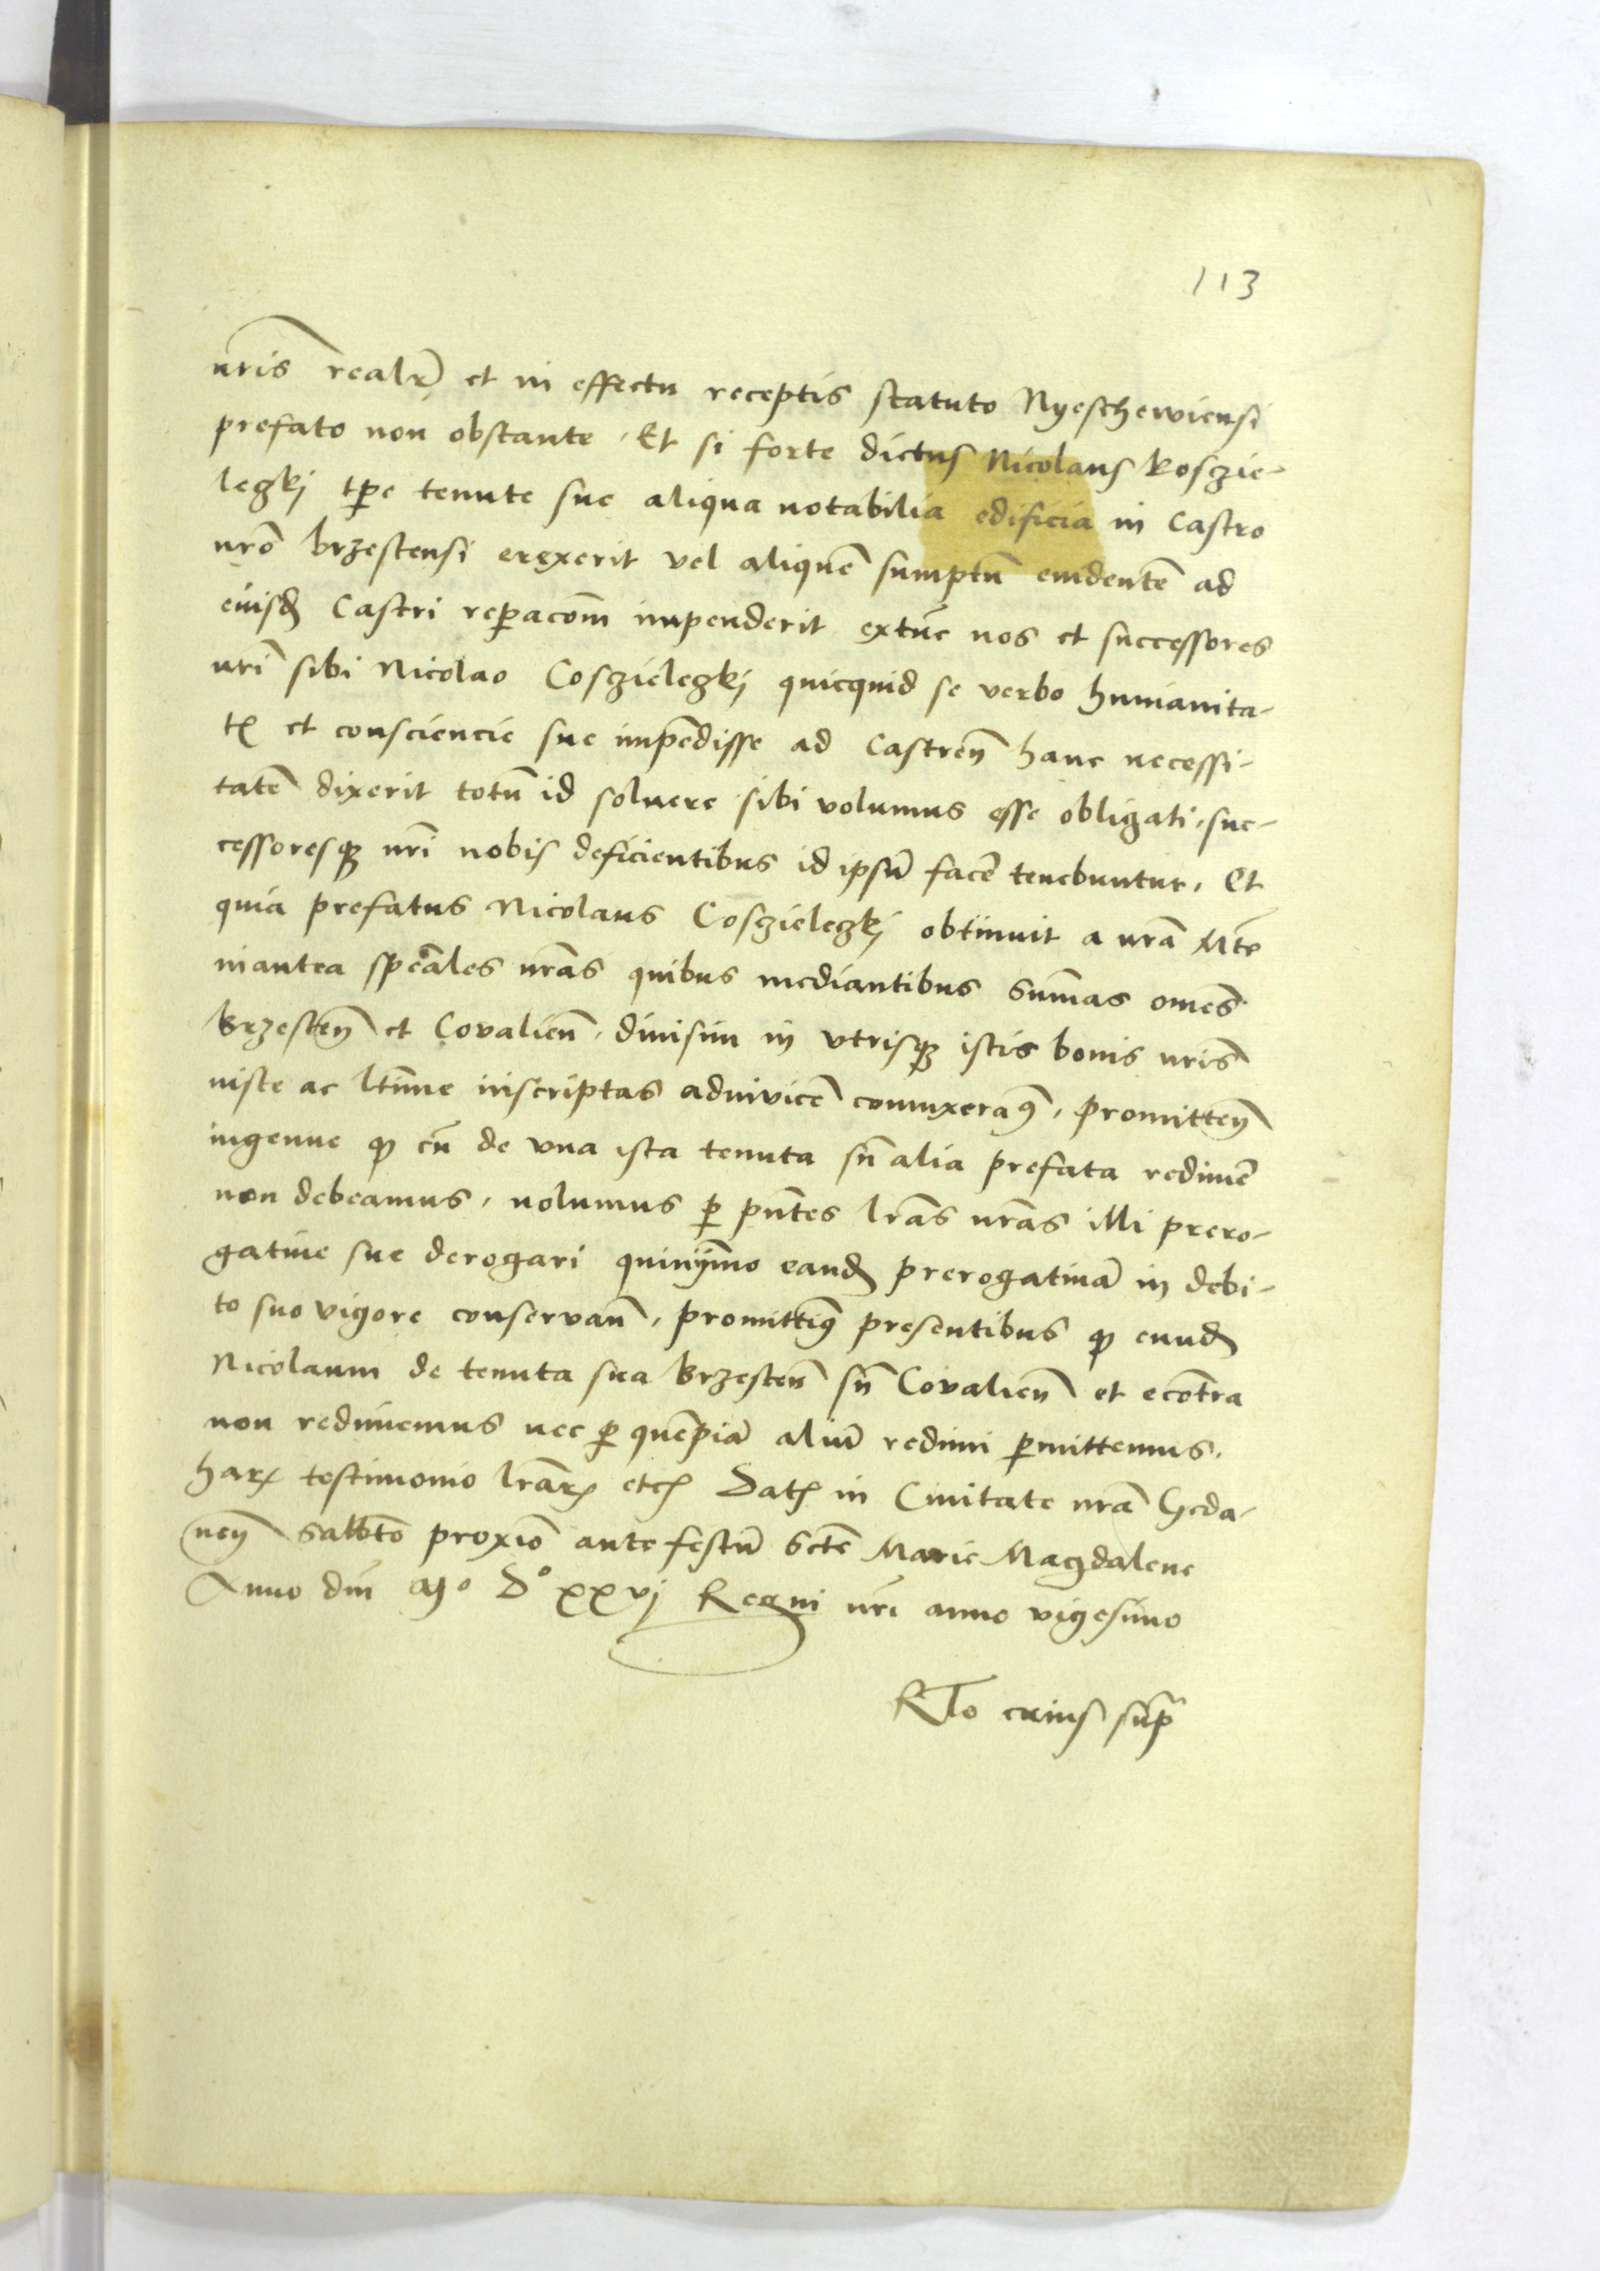 113
nris realr et in effectu receptis statuto Nyeschewiensi
prefato non obstante. Et si forte dictus Nicolaus Koszie-
leczkj tpe tenute sue aliqua notabilia edificia in Castro
nro brzestensi erexerit vel aliquem sumptum euidentem ad
eiusd Castri reparacom impenderit extunc nos et successores
nri sibi Nicolao Coszieleczkj quicquid se verbo humanita-
tis et consciencie sue impendisse ad Castren hanc necessi-
tatem dixerit totum id soluere sibi volumus esse obligati, suc-
cessoresque nri nobis deficientibus id ipsum facere tenebuntur. Et
quia prefatus Nicolaus Coszieleczkj obtinuit a nra Mte
inantea speales nras quibus mediantibus summas omes
Brzesten et Covalien. diuisim in vtrisque istis bonis nris
iuste ac ltime inscriptas adinvicem coniunxeramus, promitten
ingenue quod eum de vna ista tenuta sn alia prefata redimere
non debeamus, nolumus per pntes lras nras illi prero-
gatiue sue derogari quinymmo eand prerogatiuam in debi-
to suo vigore conservan, promittimus presentibus quod eund
Nicolaum de tenuta sua Brzesten sn Covalien et econtra
non redimemus nec per quempiam alium redimi permittemus.
harum testimonio lrarum etc Dat in Ciuitate nra Geda-
nen Sabbto proximo ante festum Scte Marie Magdalene
Anno dni Mo Do xxvj Regni nri anno vigesimo
Rlo cuius supra